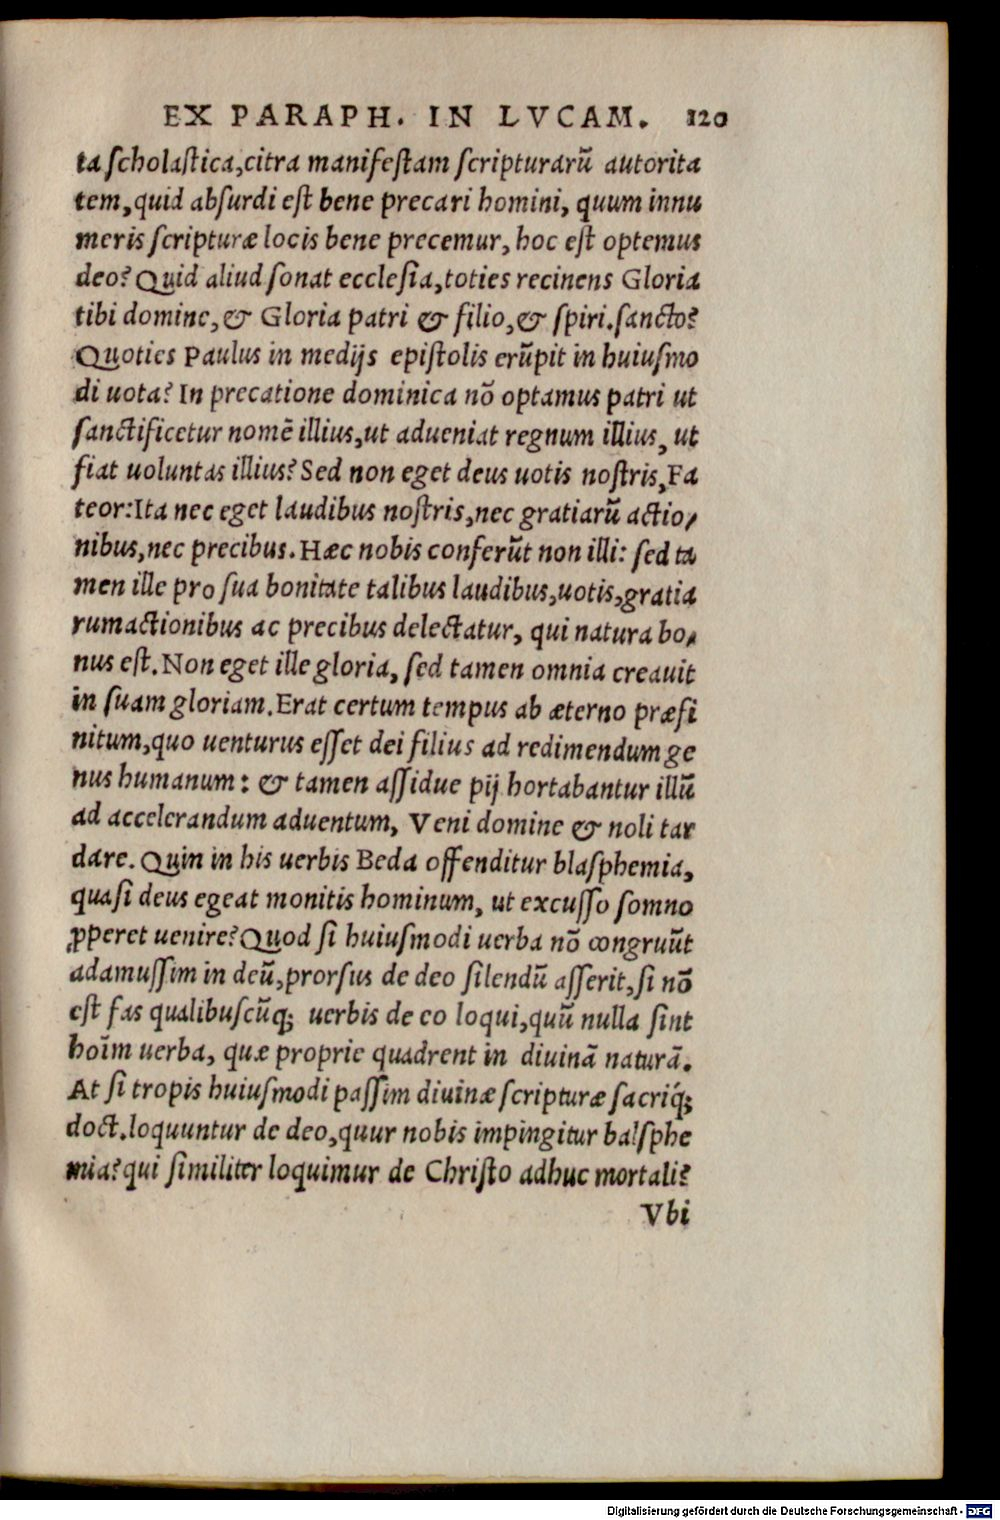 EX PARAPH. IN LVCAM. 120
ta scholastica,citra manifestam scripturarũ autorita
tem,quid absurdi est bene precari homini, quum innu
meris scripturæ locis bene precemur, hoc est optemus
deo? Quid aliud sonat ecclesia,toties recinens Gloria
tibi domine, & Gloria patri & filio,& spiri.sancto?
Quoties Paulus in medijs epistolis erũpit in huiusmo
di uota? In precatione dominica nõ optamus patri ut
sanctificetur nomẽ illius,ut adueniat regnum illius, ut
fiat uoluntas illius? Sed non eget deus uotis nostris,Fa
teor:Ita nec eget laudibus nostris,nec gratiarũ actio/
nibus,nec precibus. Hæc nobis conferũt non illi: sed ta
men ille pro sua bonitate talibus laudibus,uotis,gratia
rumactionibus ac precibus delectatur, qui natura bo/
nus est. Non eget ille gloria, sed tamen omnia creauit
in suam gloriam. Erat certum tempus ab æterno præfi
nitum,quo uenturus esset dei filius ad redimendum ge
nus humanum: & tamen assidue pij hortabantur illũ
ad accelerandum aduentum, Veni domine & noli tar
dare. Quin in his uerbis Beda offenditur blasphemia,
quasi deus egeat monitis hominum, ut excusso somno
ꝓperet uenire? Quod si huiusmodi uerba nõ congruũt
adamussim in deũ,prorsus de deo silendũ asserit,si nõ
est fas qualibuscũq; uerbis de eo loqui,quũ nulla sint
hoĩm uerba, quæ proprie quadrent in diuinã naturã.
At si tropis huiusmodi passim diuinæ scripturæ sacriq́;
doct.loquuntur de deo,quur nobis impingitur balsphe
mia? qui similiter loquimur de Christo adhuc mortali?
Vbi
Digitalisierung gefördert durch die Deutsche Forschungsgemeinschaft - DFG